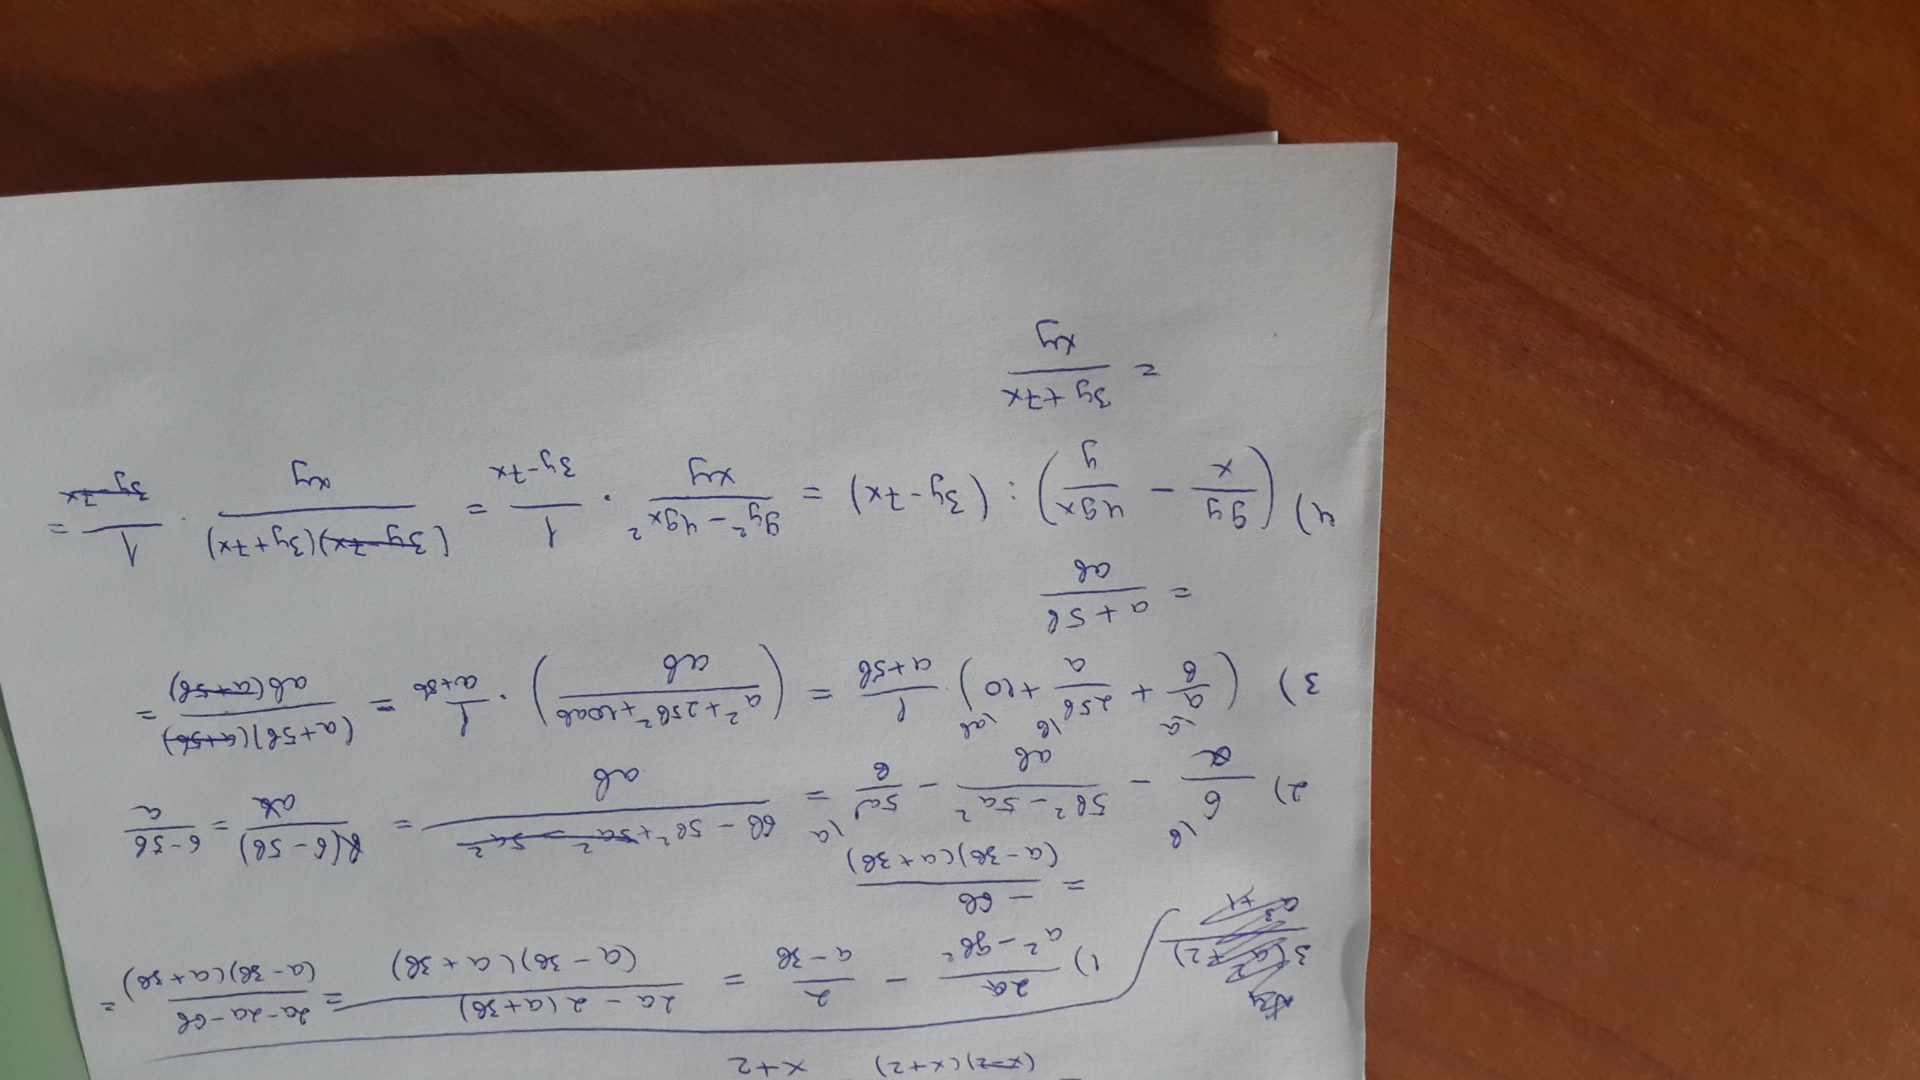 (x-2)(x+2)   x+2
1) 2a/(a²-9b²) - 2/(a-3b) = (2a-2(a+3b))/((a-3b)(a+3b)) = (2a-2a-6b)/((a-3b)(a+3b)) =
= -6b/((a-3b)(a+3b))
2) 6/a - (5b²-5a²)/(ab) - 5a/b = (6b-5b²+5a²-5a²)/(ab) = b(6-5b)/(ab) = (6-5b)/a
3) (a/b + 25b/a + 10) · 1/(a+5b) = ((a²+25b²+10ab)/(ab)) · 1/(a+5b) = (a+5b)(a+5b)/(ab(a+5b)) =
= (a+5b)/(ab)
4) (9y/x - 49x/y) : (3y-7x) = (9y²-49x²)/(xy) · 1/(3y-7x) = (3y-7x)(3y+7x)/(xy) · 1/(3y-7x) =
= (3y+7x)/(xy)